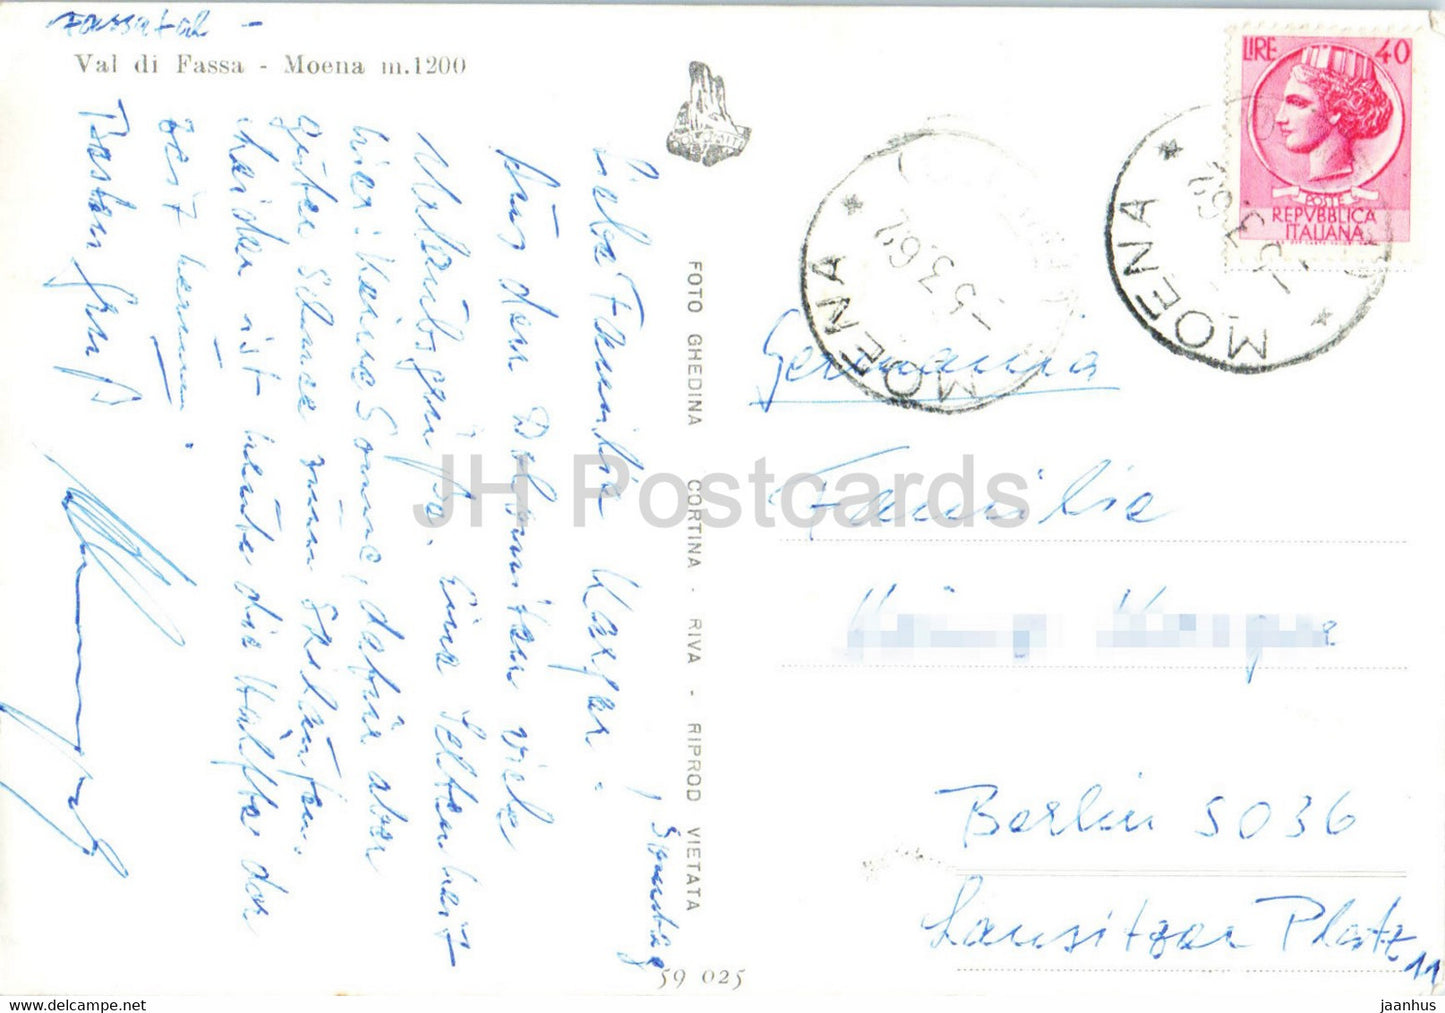 Fassatal -
Val di Fassa - Moena m.1200
Sonntag
Liebe Familie
Aus den Dolomiten viele
Urlaubsgrüße. Eine Seltenheit
hier: keine Sonne, dafür aber
guter Schnee zum Skilaufen.
Leider ist heute die Hälfte der
Zeit herum.
Besten Gruß
FOTO GHEDINA CORTINA - RIVA - RIPROD VIETATA
59 025
LIRE 40
POSTE
REPVBBLICA
ITALIANA
MOENA * MOENA *
MOENA * MOENA
Germania
Familie
Berlin SO36
Lausitzer Platz 11
JH Postcards
www.delcampe.net
jaanhus